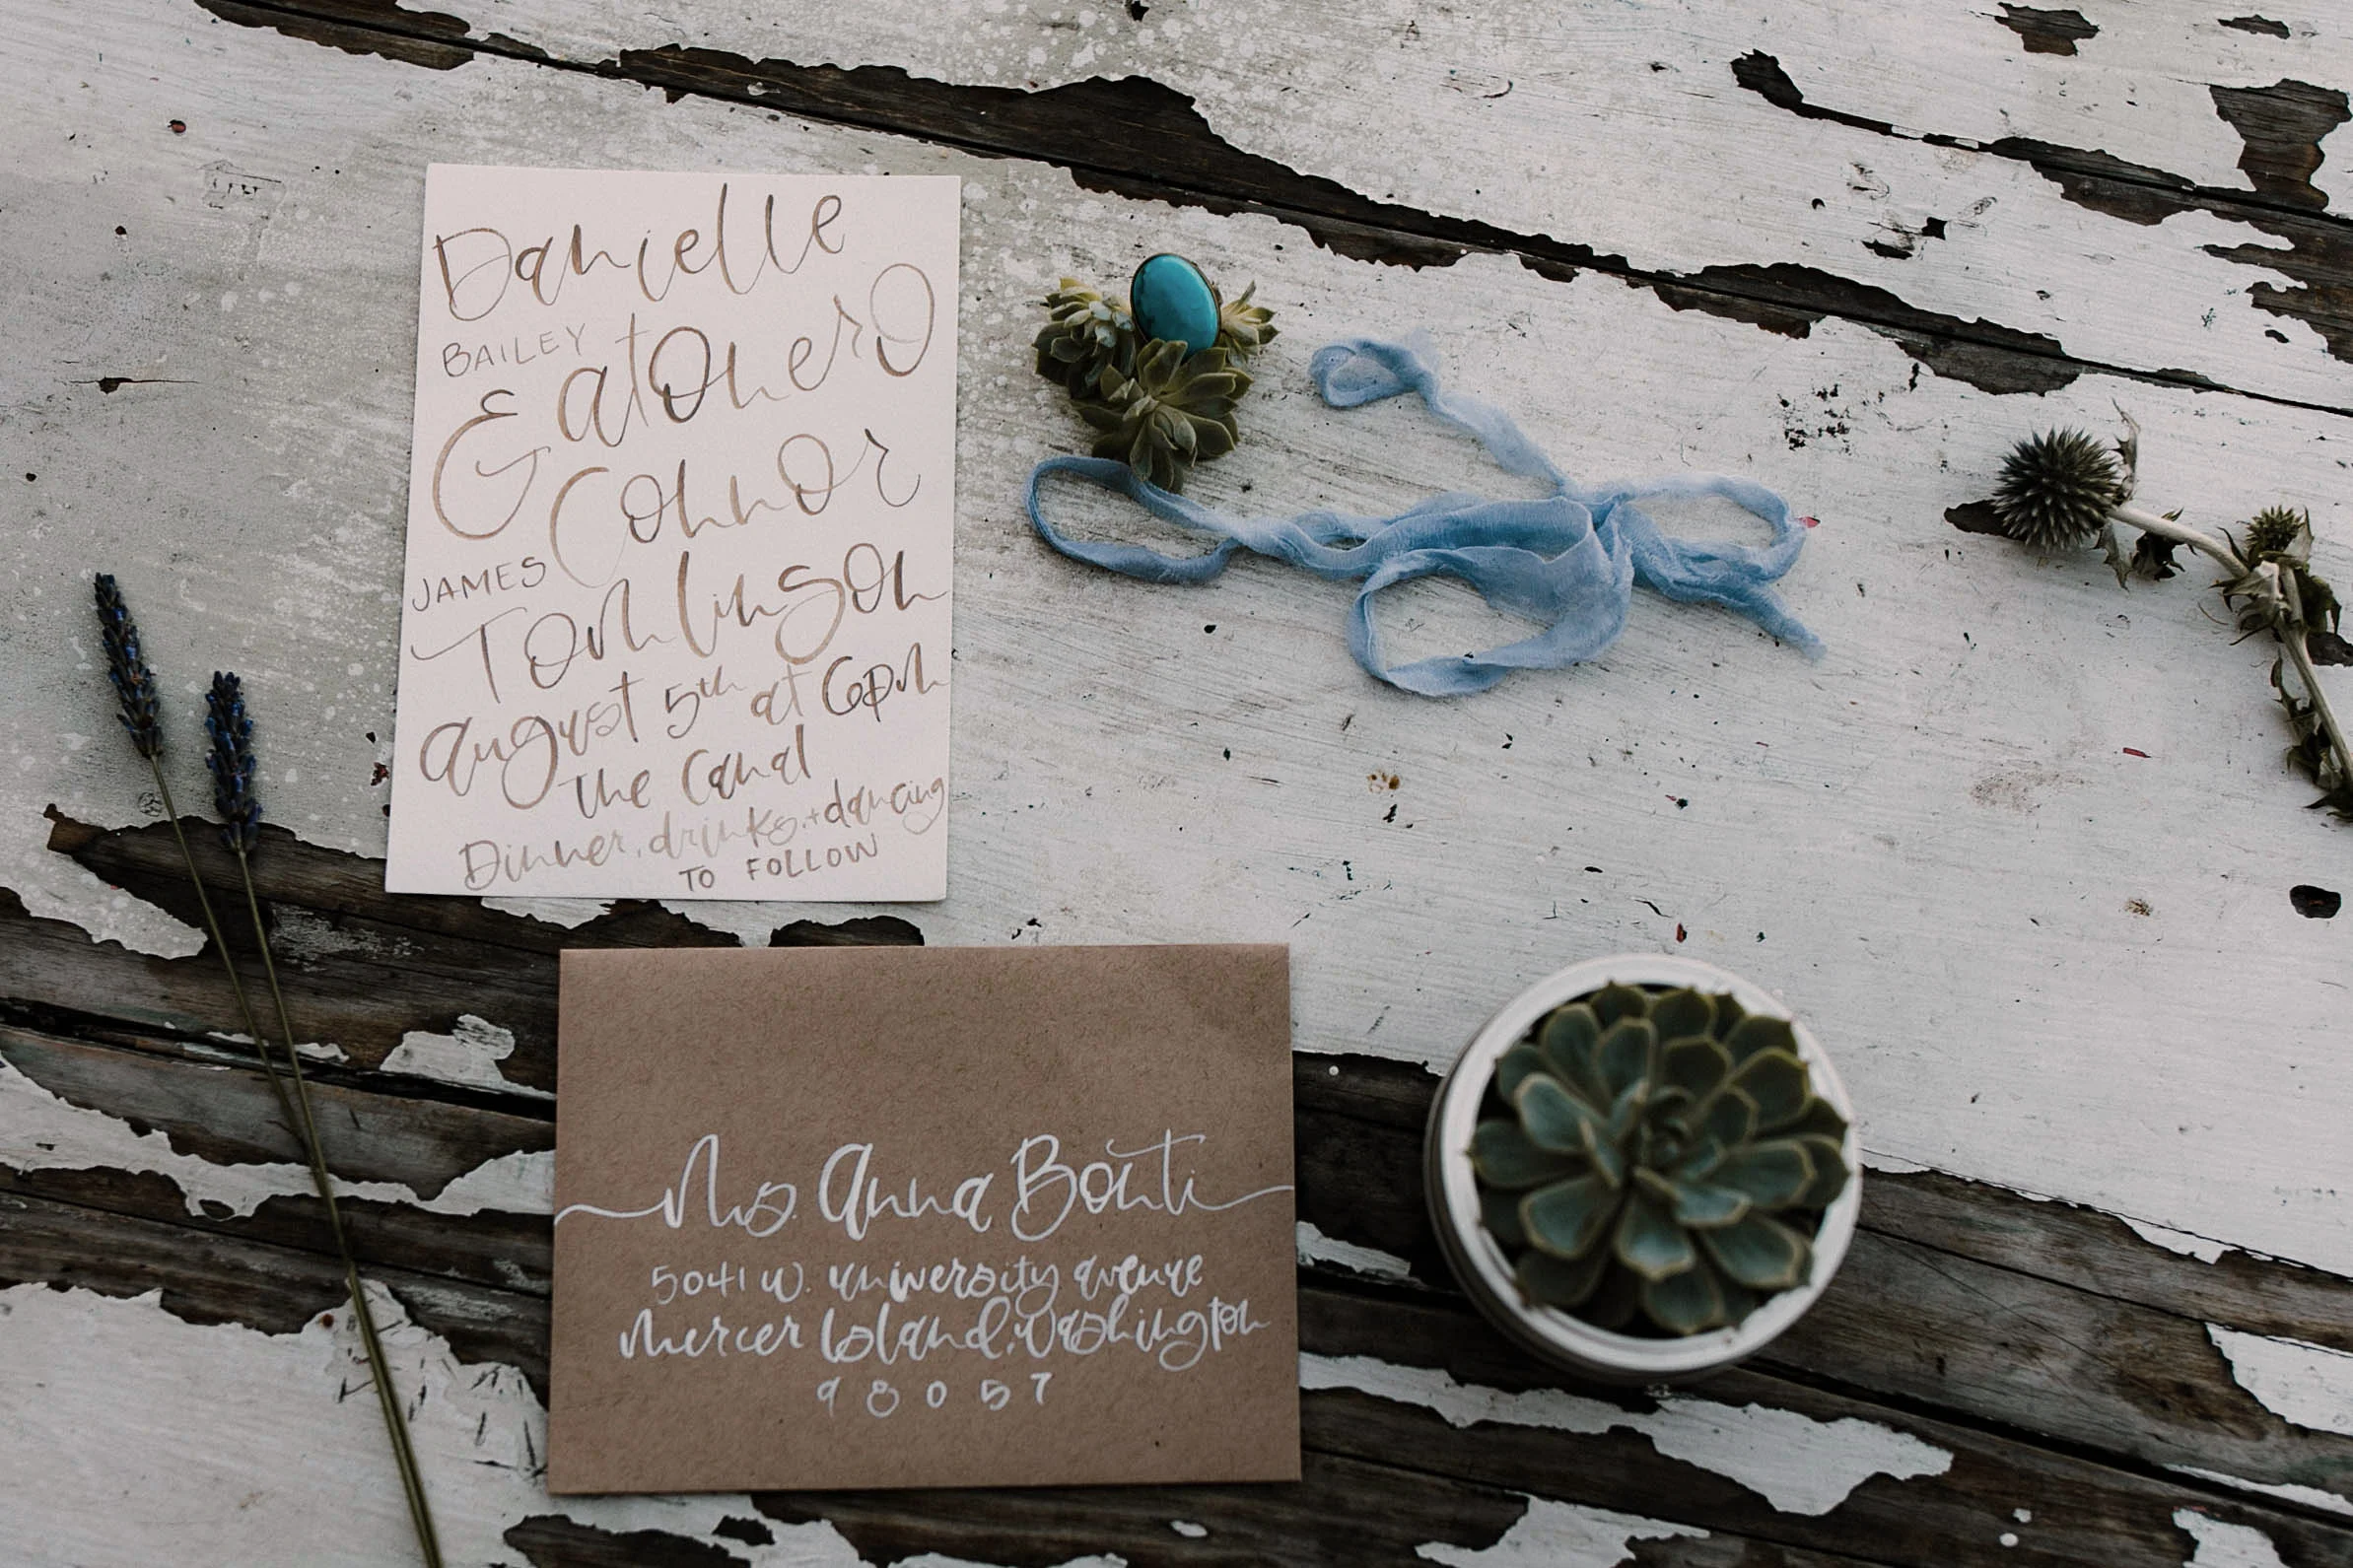 Danielle
BAILEY
& Connor
JAMES
Tomlinson
august 5th at 6pm
the Canal
Dinner, drinks, + dancing
TO FOLLOW
Ms. Anna Bonti
5041 W. university avenue
Mercer Island, Washington
98057